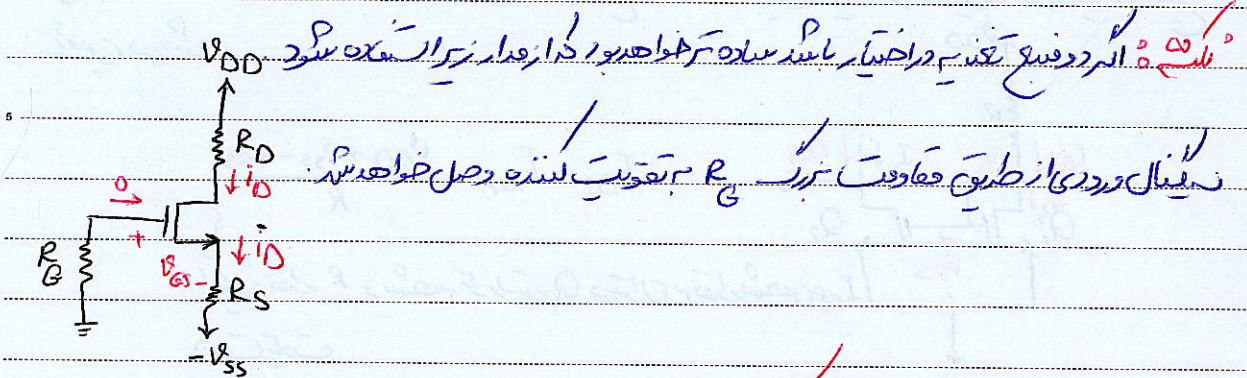 نکته: اگر دو منبع تغذیه در اختیار باشد ساده تر خواهد بود که از مدار زیر استفاده شود
V_DD
5
R_D
سیگنال ورودی از طریق مقاومت بزرگ R_G به تقویت کننده وصل خواهد شد.
i_D
0
+
i_D
R_G
V_GS -
R_S
-V_SS